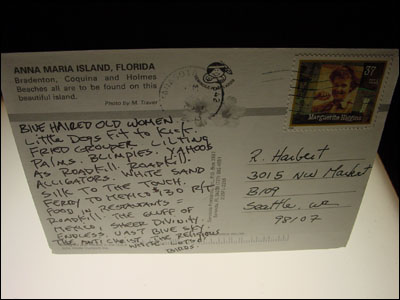 ANNA MARIA ISLAND, FLORIDA
Bradenton, Coquina and Holmes
Beaches all are to be found on this
beautiful island.
Photo by M. Traver
37
Marguerite Higgins
BLUE HAIRED OLD WOMEN.
LITTLE DOGS FIT TO KICK.
FRIED GROUPER. LILTING
PALMS. BLIMPIES. YAHOOS
AS ROADKILL. ROADKILL.
ALLIGATORS. WHITE SAND
SILK TO THE TOUCH.
FERRY TO MEXICO $130 R/T
FOOD & RESTAURANTS =
ROADKILL. THE GULF OF
MEXICO, SHEER DIVINITY.
ENDLESS, VAST BLUE SKY.
THE ANTI CHRIST. THE RELIGIOUS
WHITE. LOTSO
BIRDS.
R. Harbert
3015 NW Market
B109
Seattle, WA
98107